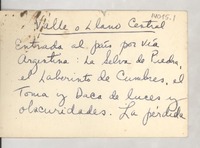 Valle o Llano Central
Entrada al país por vía
Argentina: La Selva de Piedra,
el Laberinto de Cumbres, el
Toma y Daca de luces y
obscuridades. La pérdida